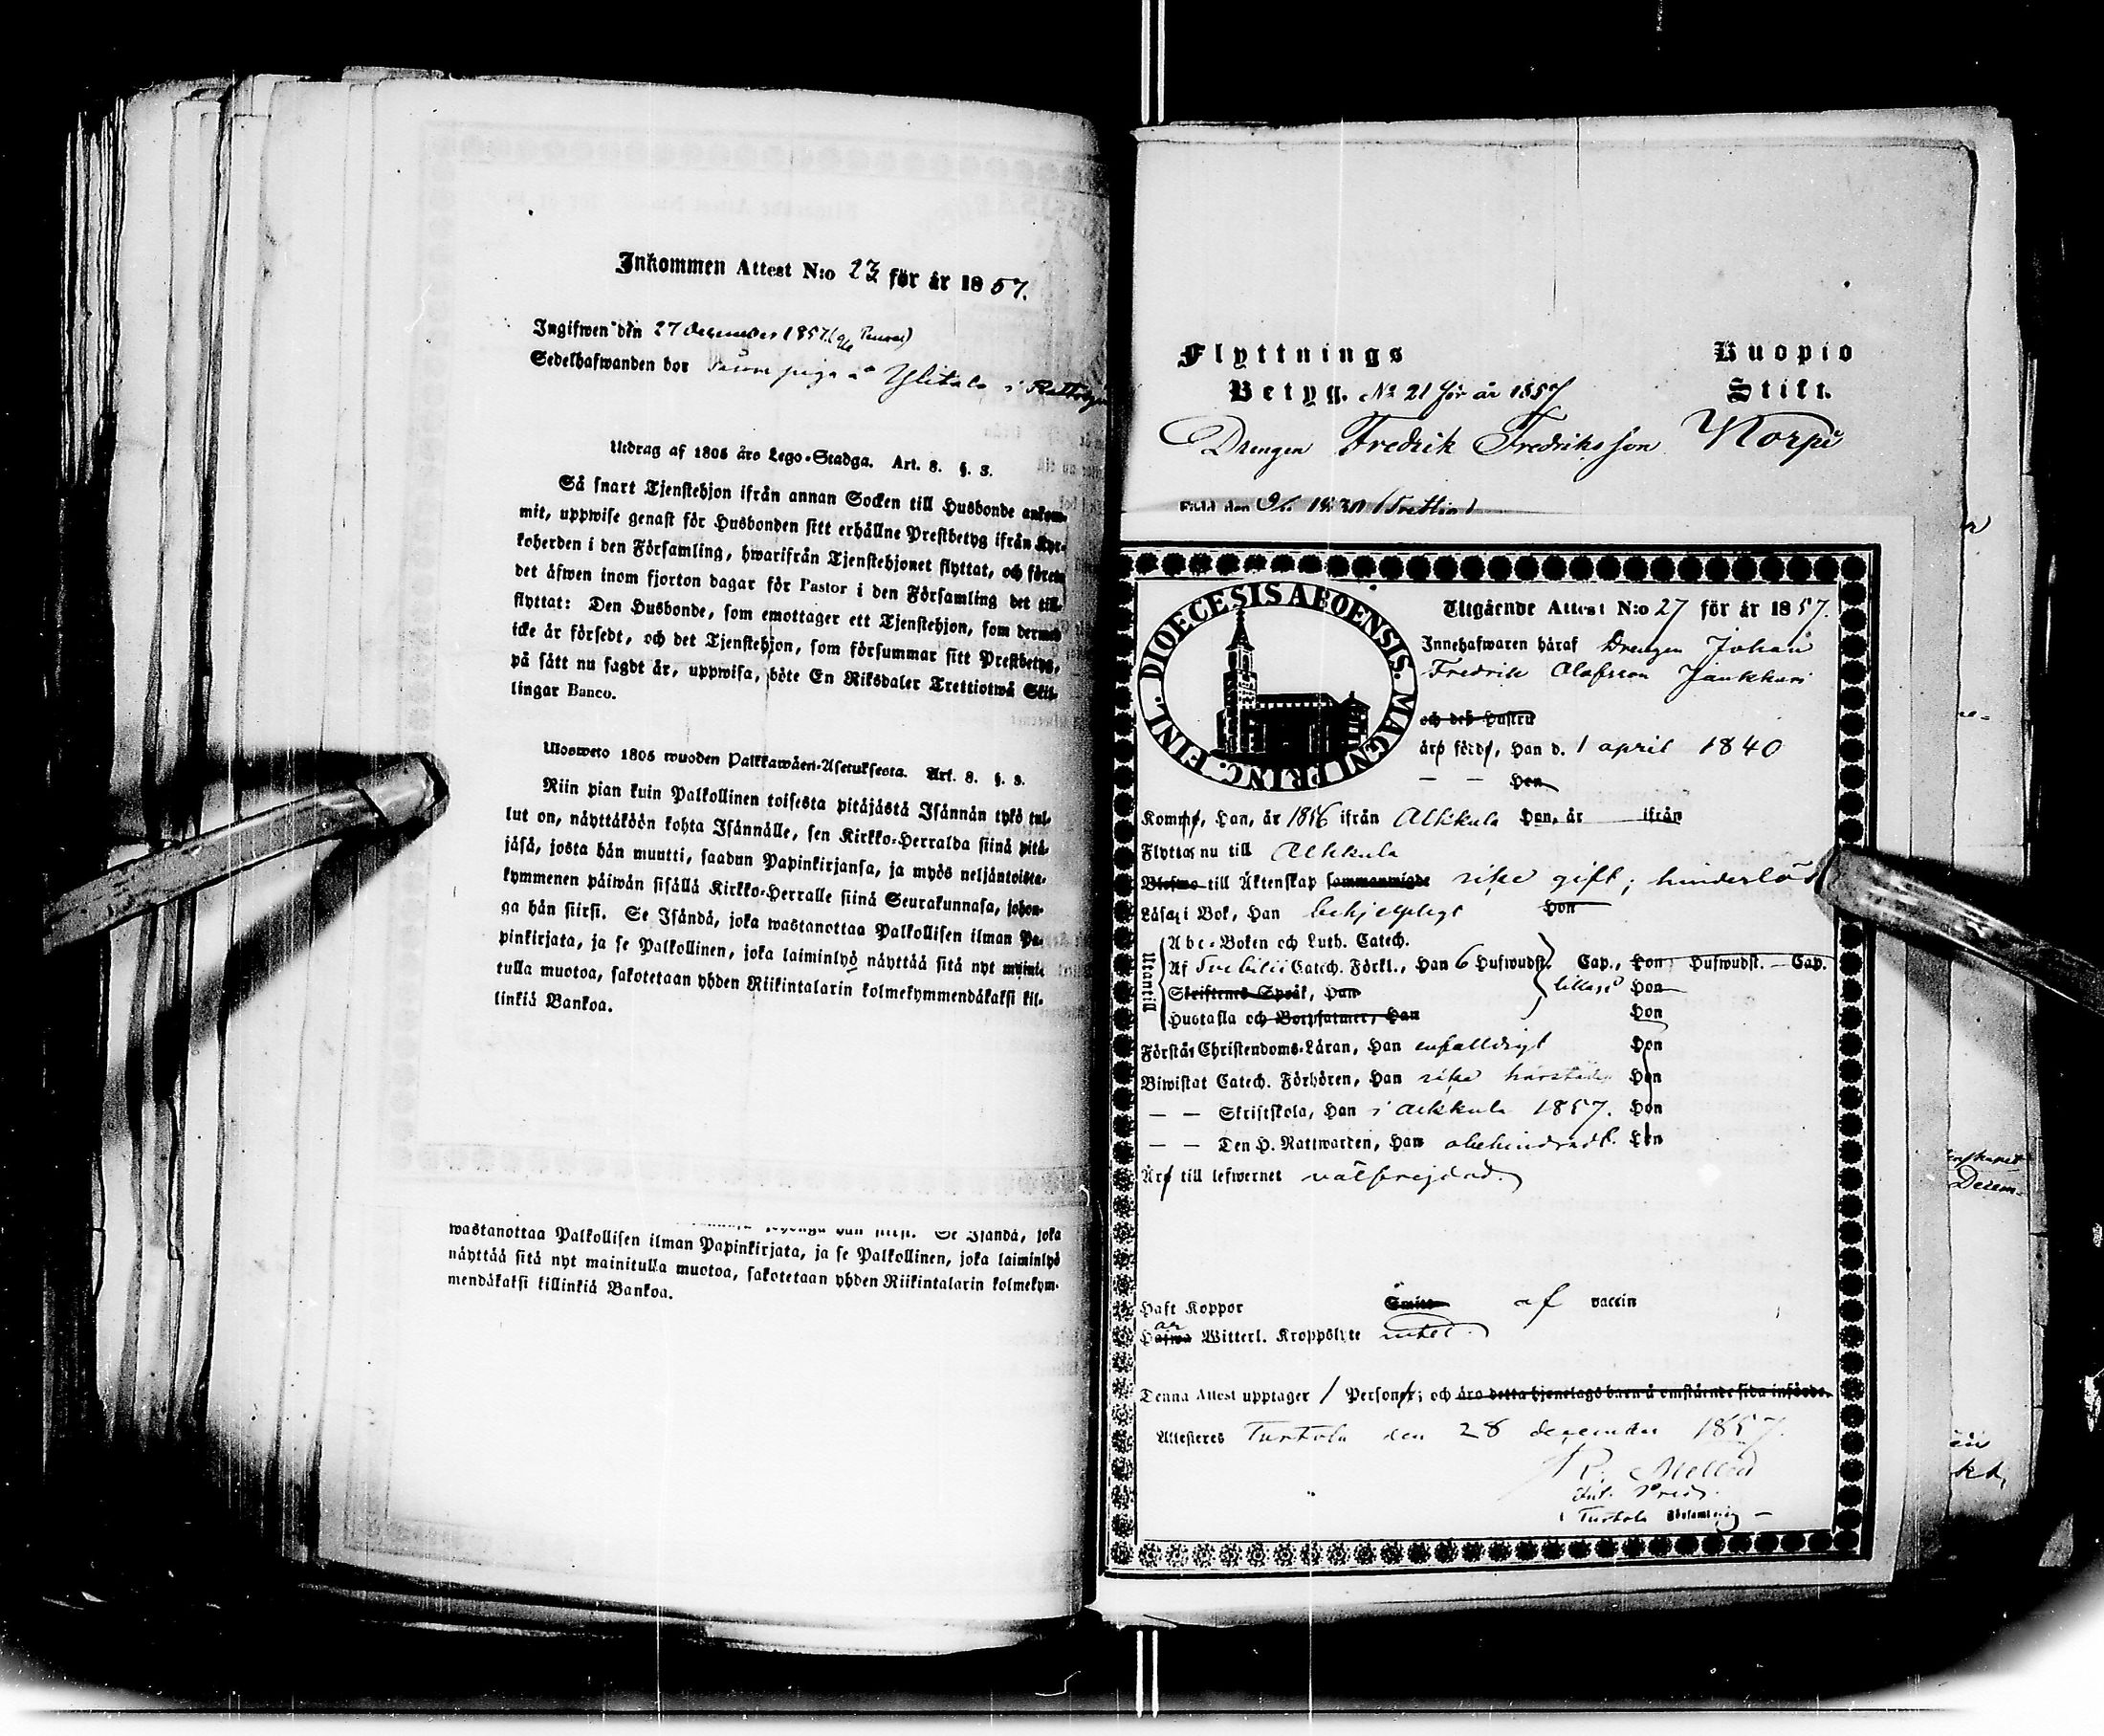 Inkommen Attest N:o 23 för år 1857.
Ingifwen den 27 december 1857
Sedelhafwanden bor piga å Ylitalo i
Utdrag af 1805 års Lego-Stadga. Art. 8. §. 3.
Så snart Tjenstehjon ifrån annan Socken till Husbonde ankom-
mit, uppwise genast för Husbonden sitt erhållne Prestbetyg ifrån Kyr-
koherden i den Församling, hwarifrån Tjenstehjonet flyttat, och förete
det äfwen inom fjorton dagar för Pastor i den Församling det till-
flyttat: Den Husbonde, som emottager ett Tjenstehjon, som dermed
icke är försedt, och det Tjenstehjon, som försummar sitt Prestbetyg,
på sätt nu sagdt är, uppwisa, böte En Riksdaler Trettiotwå Skil-
lingar Banco.
Ulosweto 1805 wuoden Palkkawäen-Asetuksesta. Art. 8. §. 3.
Niin pian kuin Palkollinen toisesta pitäjästä Isännän tykö tul-
lut on, näyttäköön kohta Isännälle, sen Kirkko-Herralda siinä pitä-
jäsä, josta hän muutti, saadun Papinkirjansa, ja myös neljäntoista-
kymmenen päiwän sisällä Kirkko-Herralle siinä Seurakunnasa, johon-
ga hän siirsi. Se Isändä, joka wastanottaa Palkollisen ilman Pa-
pinkirjata, ja se Palkollinen, joka laiminlyö näyttää sitä nyt maini-
tulla muotoa, sakotetaan yhden Riikintalarin kolmekymmendäkaksi kil-
linkiä Bankoa.
Se Isändä, joka
wastanottaa Palkollisen ilman Papinkirjata, ja se Palkollinen, joka laiminlyö
näyttää sitä nyt mainitulla muotoa, sakotetaan yhden Riikintalarin kolmekym-
mendäkaksi killinkiä Bankoa.
Flyttnings Kuopio
Betyg. No 21 för år 1857 Stift.
Drengen Fredrik Fredriksson Norpi
Född den 1830 (Trettio)
DIOECESIS ABOENSIS. MAGNI PRINC. FINL.
Utgående Attest N:o 27 för år 1857.
Innehafwaren häraf Drengen Johan
Fredrik Olafsson Jankkari
och deß Hustru
äro född, Han d. 1 april 1840
— — Hon
Kommo, Han, år 1856 ifrån Alkkula Hon, år ifrån
Flyttar nu till Alkkula
Blefwo till Äktenskap sammanwigde icke gift; hinderlös
Läsa i Bok, Han behjelpligt Hon
Utantill
Abc-Boken och Luth. Catech.
Af Svebilii Catech. Förkl., Han 6 Hufwudst. Cap., Hon Hufwudst. — Cap.
Skriftenes Språk, Han Hon
Hustafla och Botpsalmer, Han Hon
Förstår Christendoms-Läran, Han enfalldigt Hon
Biwistat Catech. Förhören, Han icke härstädes Hon
— — Skriftskola, Han i Alkkula 1857. Hon
— — Den H. Nattwarden, Han obehindradt. Hon
Äro till lefwernet välfrejdad.
Haft Koppor Smitto af vaccin
Hafwa Witterl. Kroppslyte intet.
Denna Attest upptager 1 Person; och äro detta hjonelags barn å omstående sida införde.
Attesteras Turtola den 28 december 1857.
Turtola Församling